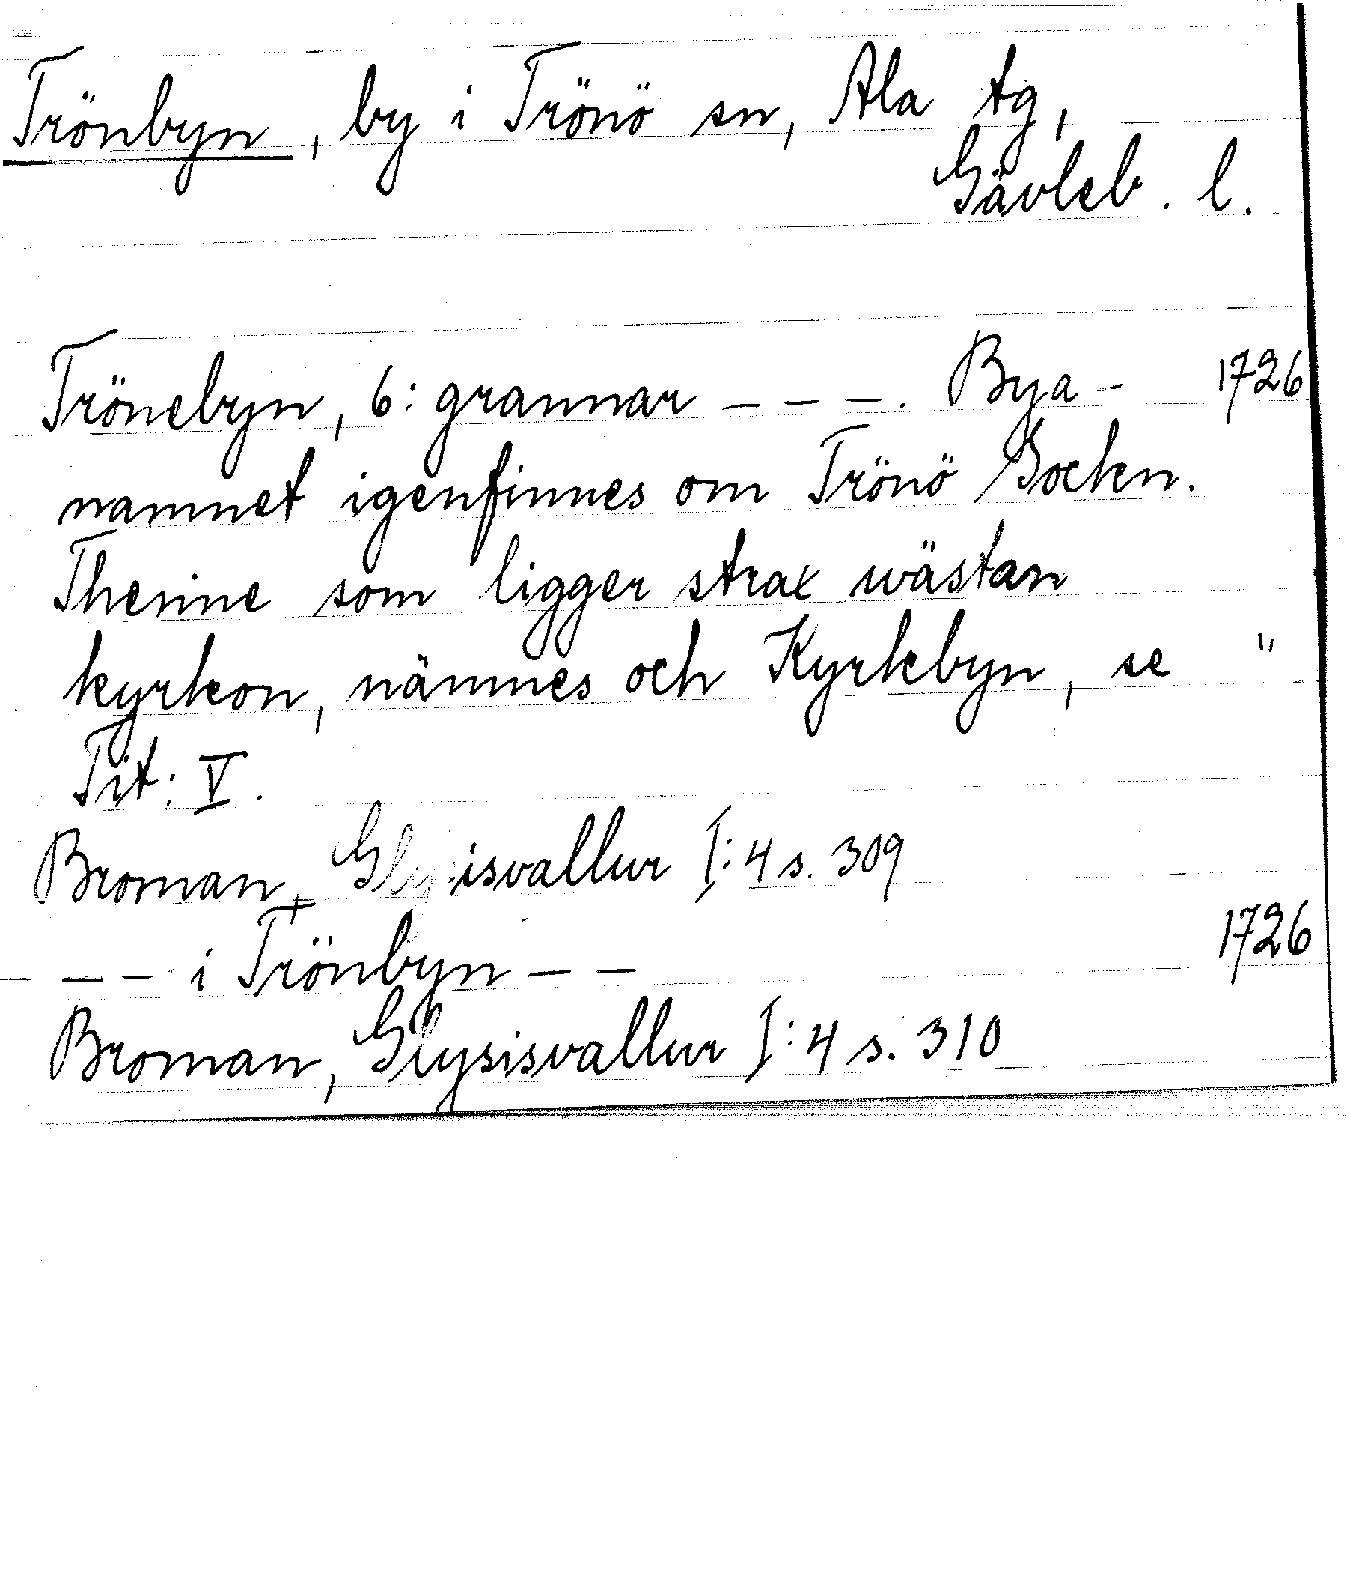 Trönbyn, by i Trönö sn, Ala tg,
Gävleb. l.
Trönebyn, 6: grannar – – –. Bya- 1726
namnet igenfinnes om Trönö Sockn.
Thenne som ligger strax wästan
kyrkon, nämnes och Kyrkbyn, se "
Tit: V.
Broman, Glysisvallur I:4 s. 309
– – i Trönbyn – – 1726
Broman, Glysisvallur I:4 s. 310